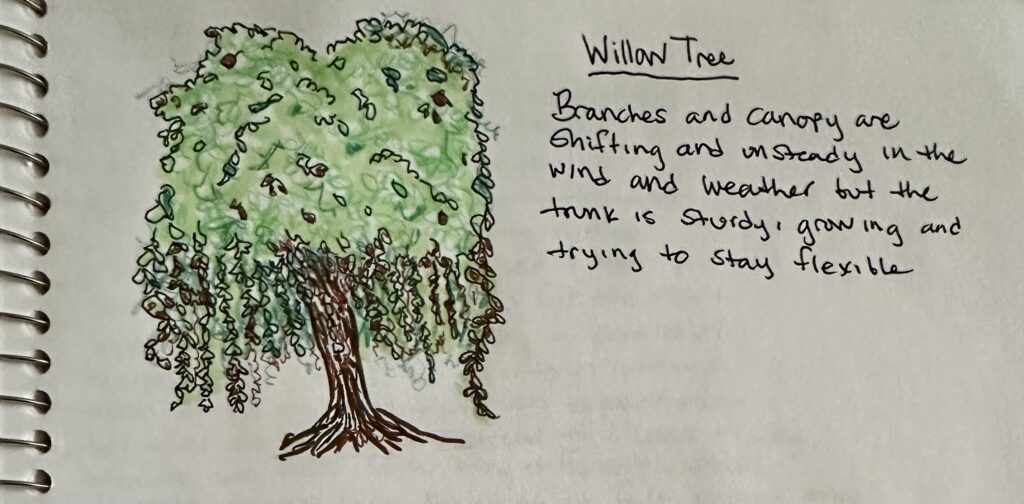 Willow Tree
Branches and canopy are
shifting and unsteady in the
wind and weather but the
trunk is sturdy, growing and
trying to stay flexible